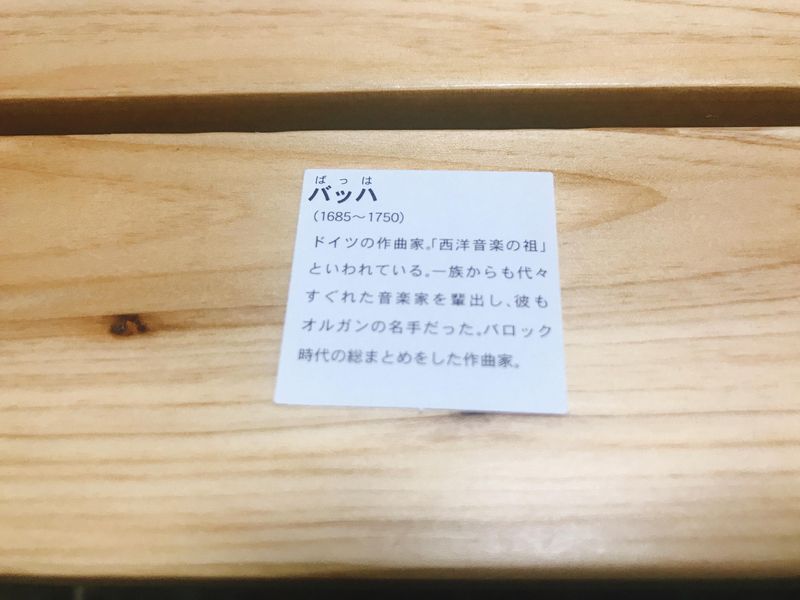 ばっは
バッハ
（1685〜1750）
ドイツの作曲家。「西洋音楽の祖」
といわれている。一族からも代々
すぐれた音楽家を輩出し、彼も
オルガンの名手だった。バロック
時代の総まとめをした作曲家。